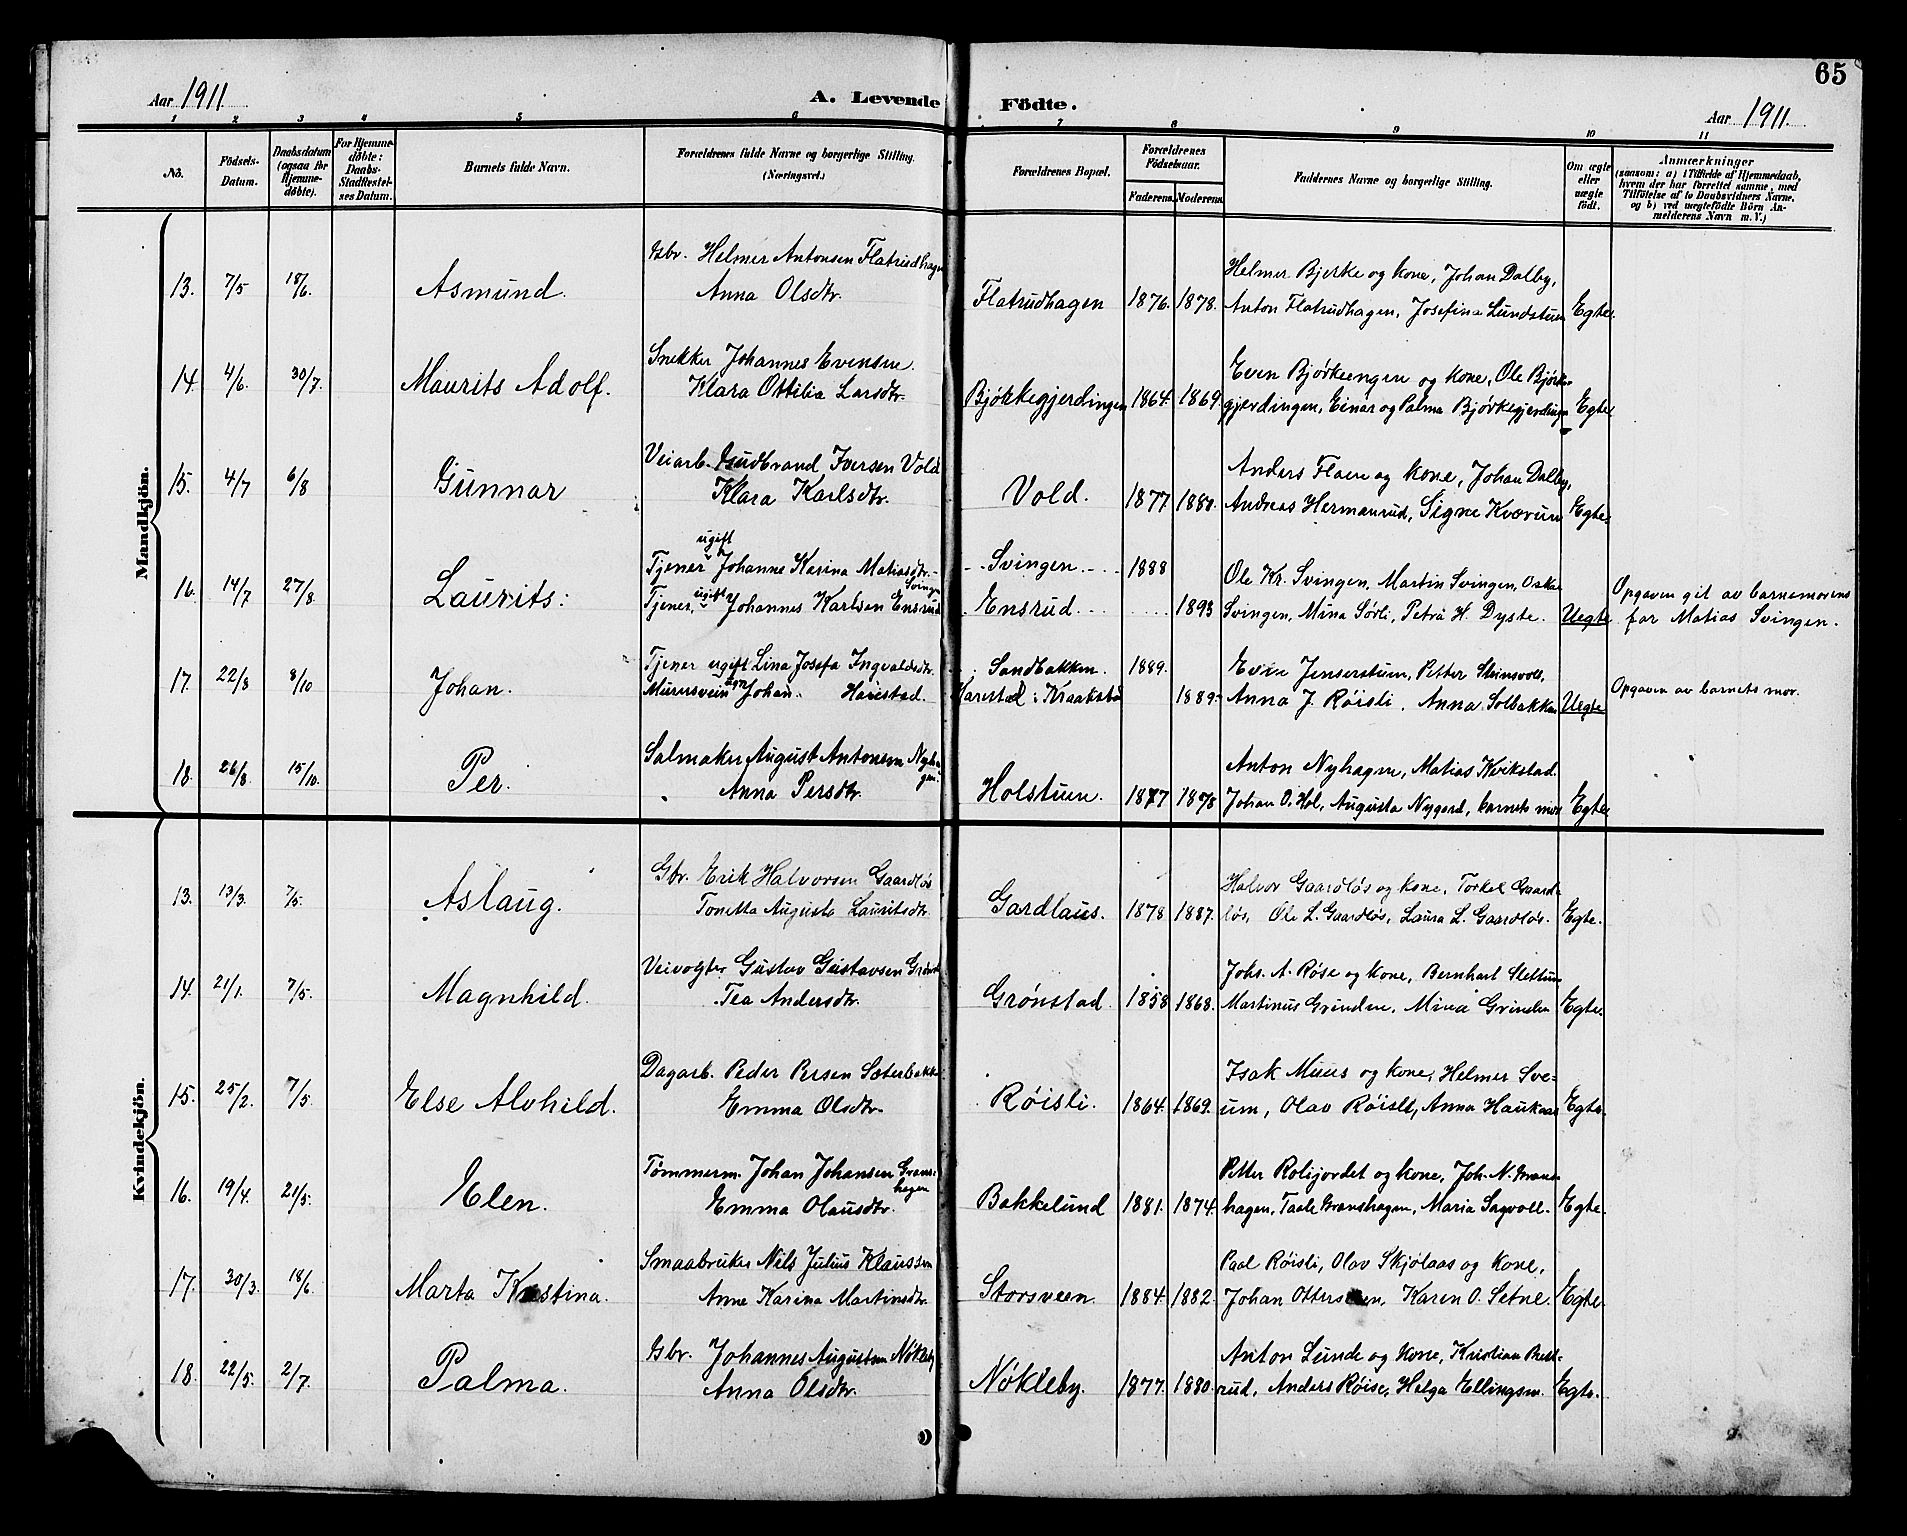 65
Aar 1911
A. Levende Födte.
Aar 1911.
1 2 3 4 5 6 7 8 9 10 11
No.
Födsels-Datum.
Daabsdatum (ogsaa for Hjemmedöbte).
For Hjemmedöbte: Daabs-Stadfæstelses Datum.
Barnets fulde Navn.
Forældrenes fulde Navne og borgerlige Stilling.
(Næringsvei.)
Forældrenes Bopæl.
Forældrenes Födselsaar.
Faderens. Moderens.
Faddernes Navne og borgerlige Stilling.
Om ægte eller uægte födt.
Anmærkninger
(saasom: a) i Tilfælde af Hjemmedaab, hvem der har forrettet samme, med Tilföielse af to Daabsvidners Navne, og b) ved uægtefödte Börn Anmelderens Navn m. V.)
Mandkjön.
13. 7/5 18/6. Asmund. Gbr. Helmer Antonsen Flatrudhagen
Anna Olsdtr. Flatrudhagen 1876. 1878. Helmer Bjerke og kone, Johan Dalby,
Anton Flatrudhagen, Josefine Lundstuen Egte.
14. 4/6. 30/7. Maurits Adolf. Snekker Johannes Evensen
Klara Ottilia Larsdtr. Bjørkegjerdingen 1864. 1869. Even Bjørkeengen og kone, Ole Bjørke-
gjerdingen, Einar og Palma Bjørkegjerdingen Egte.
15. 4/7 6/8 Gunnar Veiarb. Gudbrand Iversen Vold
Klara Karlsdtr. Vold. 1877. 1880. Anders Flaen og kone, Johan Dalby,
Andreas Hermanrud, Signe Kværum Egte.
16. 14/7 27/8. Laurits: Tjener ugift Johanne Karina Matiasdtr. Svingen
Tjener, ugift Johannes Karlsen Ensrud Svingen 1888
Ensrud 1893 Ole Kr. Svingen, Martin Svingen, Oskar
Svingen, Mina Sørli, Petra H. Dyste. Uegte Opgaven git av barnemorens
far Matias Svingen.
17. 22/8 8/10 Johan. Tjener ugift Lina Josefa Ingvaldsdtr.
Murersvein Johan Harestad. Sandbakken 1889.
Harestad i Kraakstad 1889. Even Jenserstuen, Petter Steinsvoll,
Anna J. Røisli, Anna Solbakken Uegte Opgaven av barnets mor.
18. 26/8. 15/10. Per. Salmaker August Antonsen Nyhagen
Anna Persdtr. Holstuen. 1877 1878 Anton Nyhagen, Matias Kvikstad.
Johan O. Hol, Augusta Nygard, barnets mor Egte
Kvindekjön.
13. 13/3. 7/5. Aslaug. Gbr. Erik Halvorsen Gaardløs
Tonetta Augusta Lauritsdtr. Gardlaus. 1878 1887. Halvor Gaardløs og kone, Torkel Gaard-
løs, Ole L. Gaardløs, Laura L. Gaardløs. Egte.
14. 21/1. 7/5. Magnhild. Veivogter Gustav Gustavsen
Tea Andersdtr. Grønstad. 1858 1868. Johs. A. Røse og kone, Bernhart Slettum
Martinus Grinden, Mina Grinden Egte.
15. 25/2. 7/5. Else Alvhild. Dagarb. Peder Persen Sæterbakke
Emma Olsdtr. Røisli. 1864. 1869. Isak Muus og kone, Helmer Sve-
um, Olav Røisli, Anna Haukaas Egte.
16. 19/4. 21/5. Elen. Tømmerm. Johan Johansen Granshagen
Emma Olausdtr. Bakkelund 1881. 1874. Petter Rolijordet og kone, Joh. N. Grans-
hagen, Taale Granshagen, Maria Sagvoll. Egte.
17. 30/3. 18/6 Marta Kristina. Smaabruker Nils Julius Klaussen
Anne Karina Martinsdtr. Storsveen. 1884. 1882. Paal Røisli, Olav Skjølaas og kone,
Johan Ottersveen, Karen O. Setne. Egte.
18. 22/5. 2/7. Palma. Gbr. Johannes Augustsen Nøkleby
Anna Olsdtr. Nøkleby. 1877. 1880. Anton Lunde og kone, Kristian
rud, Anders Røise, Helga Ellingsen. Egte.